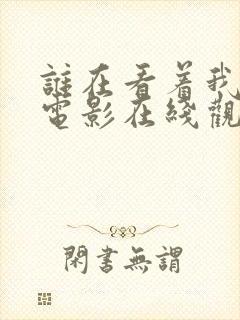 誰在看着我
電影在綫觀
閑書無謂